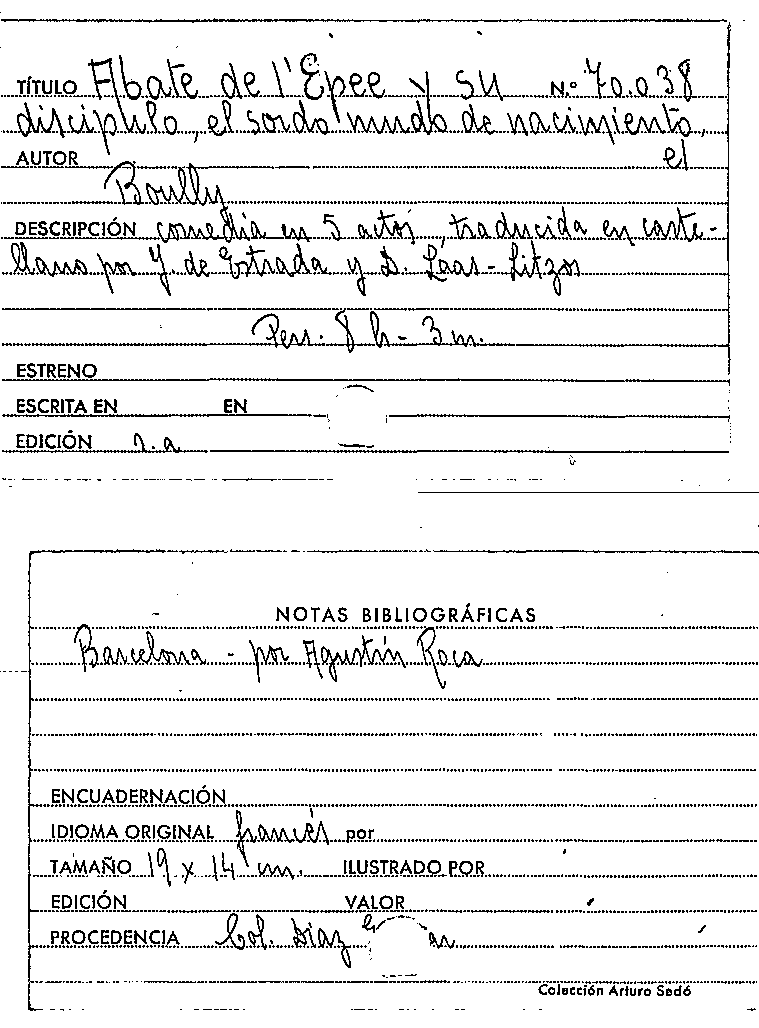 TÍTULO Abate de l'Epee y su N.º 70.038
discípulo, el sordo mudo de nacimiento,
AUTOR el
Boully
DESCRIPCIÓN comedia en 5 actos, traducida en caste-
llano por J. de Estrada y D. Láas-Litzos
Pers. 8 h - 3 m.
ESTRENO
ESCRITA EN EN
EDICIÓN s.a
NOTAS BIBLIOGRÁFICAS
Barcelona - por Agustín Roca
ENCUADERNACIÓN
IDIOMA ORIGINAL francés por
TAMAÑO 19 x 14 cm. ILUSTRADO POR
EDICIÓN VALOR
PROCEDENCIA Col. Díaz
Colección Arturo Sedó